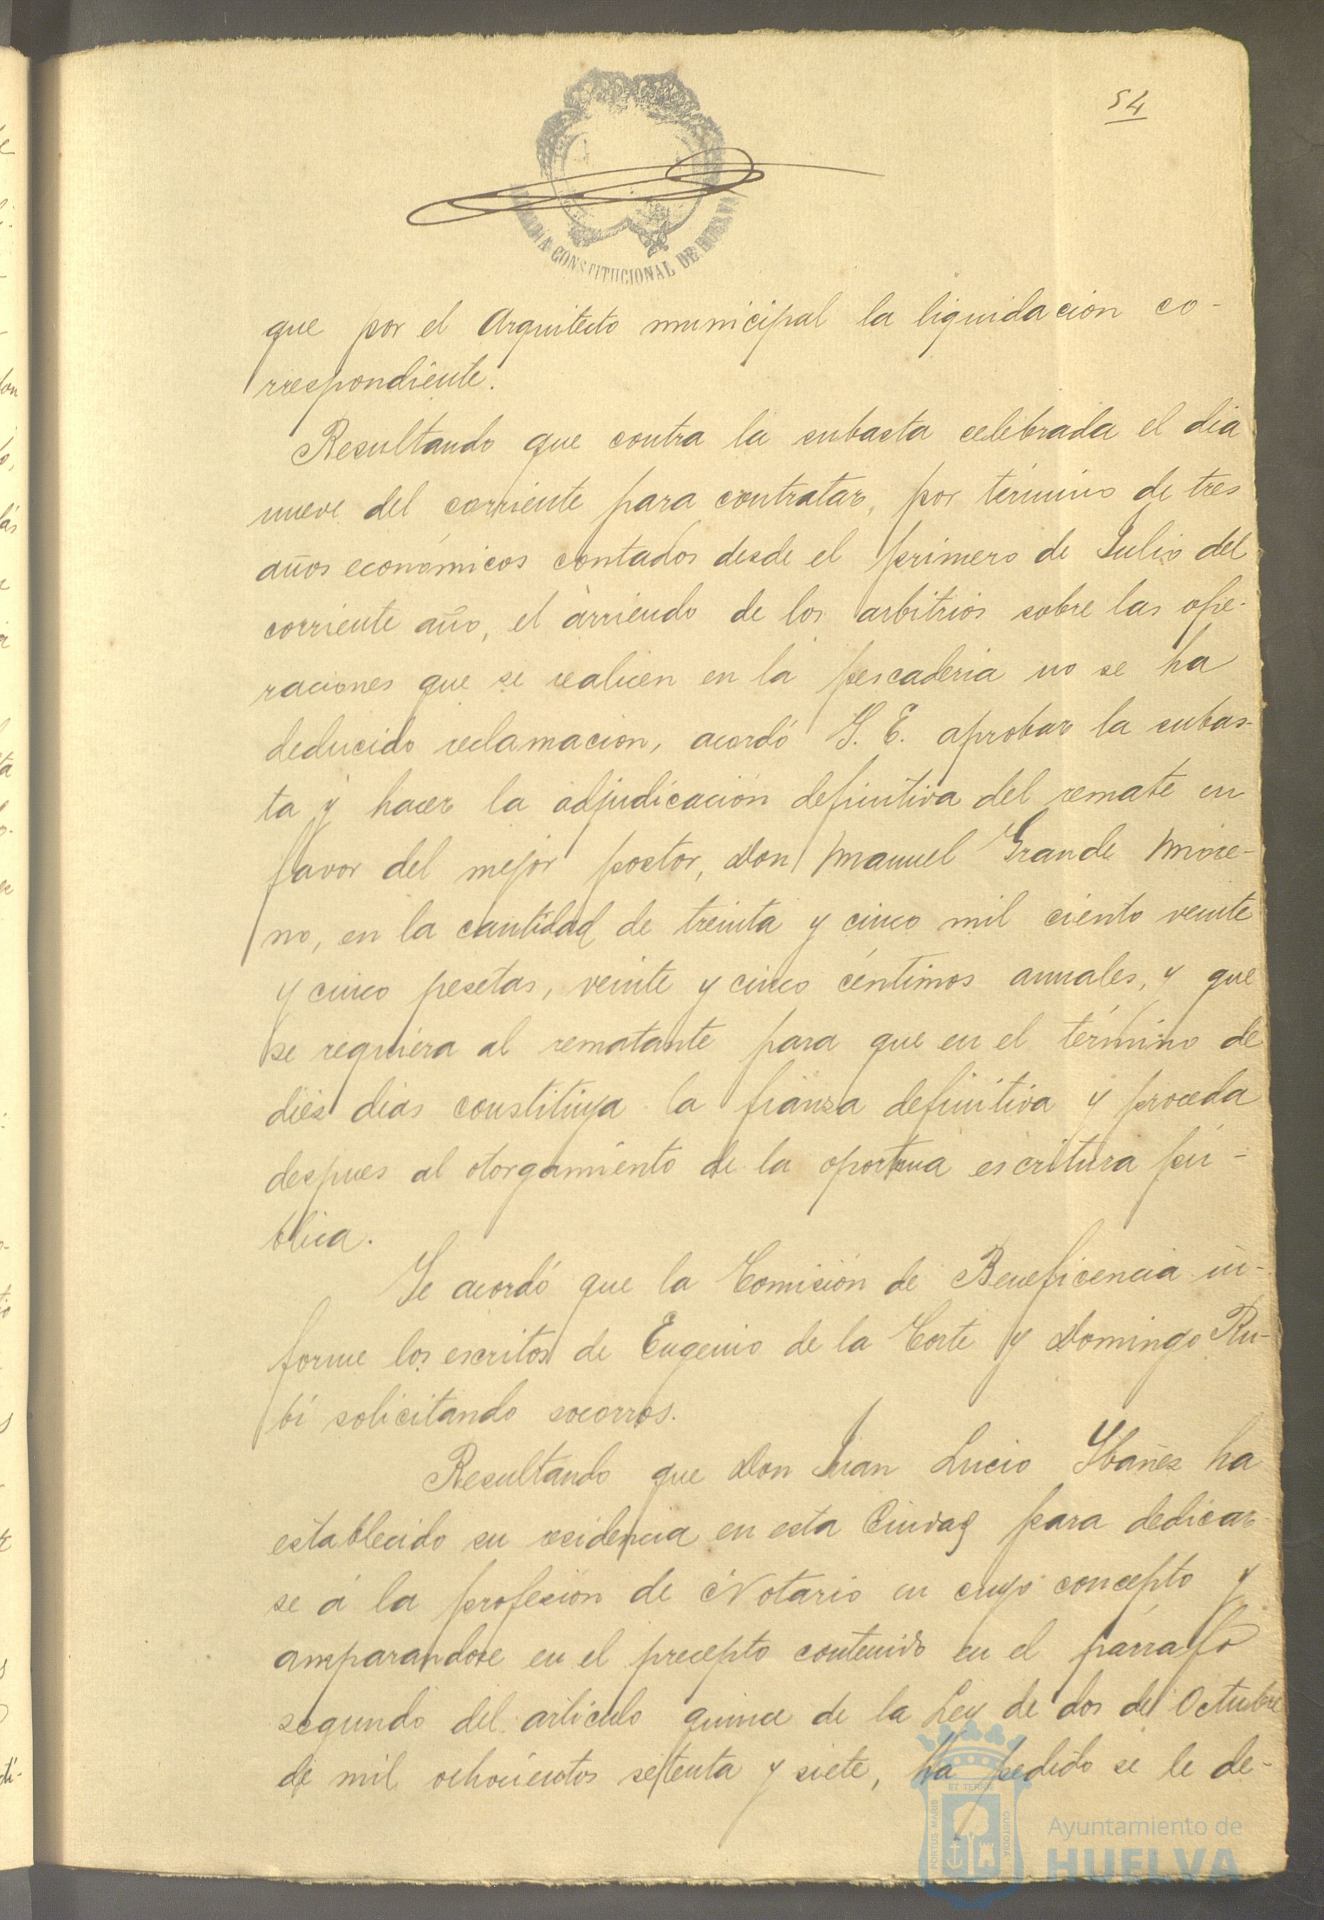 54
ALCALDIA CONSTITUCIONAL DE HUELVA
que por el Arquitecto municipal la liquidacion co-
rrespondiente.
Resultando que contra la subasta celebrada el dia
nueve del corriente para contratar, por término de tres
años económicos contados desde el primero de Julio del
corriente año, el arriendo de los arbitrios sobre las ope-
raciones que se realicen en la pescaderia no se ha
deducido reclamacion, acordó S. E. aprobar la subas-
ta y hacer la adjudicación definitiva del remate en
favor del mejor postor, Don Manuel Grande More-
no, en la cantidad de treinta y cinco mil ciento veinte
y cinco pesetas, veinte y cinco céntimos anuales, y que
se requiera al rematante para que en el término de
diez dias constituya la fianza definitiva y proceda
despues al otorgamiento de la oportuna escritura pú-
blica.
Se acordó que la Comisión de Beneficencia in-
forme los escritos de Eugenio de la Corte y Domingo Ru-
bí solicitando socorros.
Resultando que Don Juan Lucio Ybañez ha
establecido su residencia en esta Ciudad para dedicar-
se á la profesion de Notario en cuyo concepto y
amparandose en el precepto contenido en el párrafo
segundo del articulo quince de la Ley de dos de Octubre
de mil ochocientos setenta y siete, ha pedido se le de-
PORTUS MARIS ET TERRAE CUSTODIA
Ayuntamiento de
HUELVA